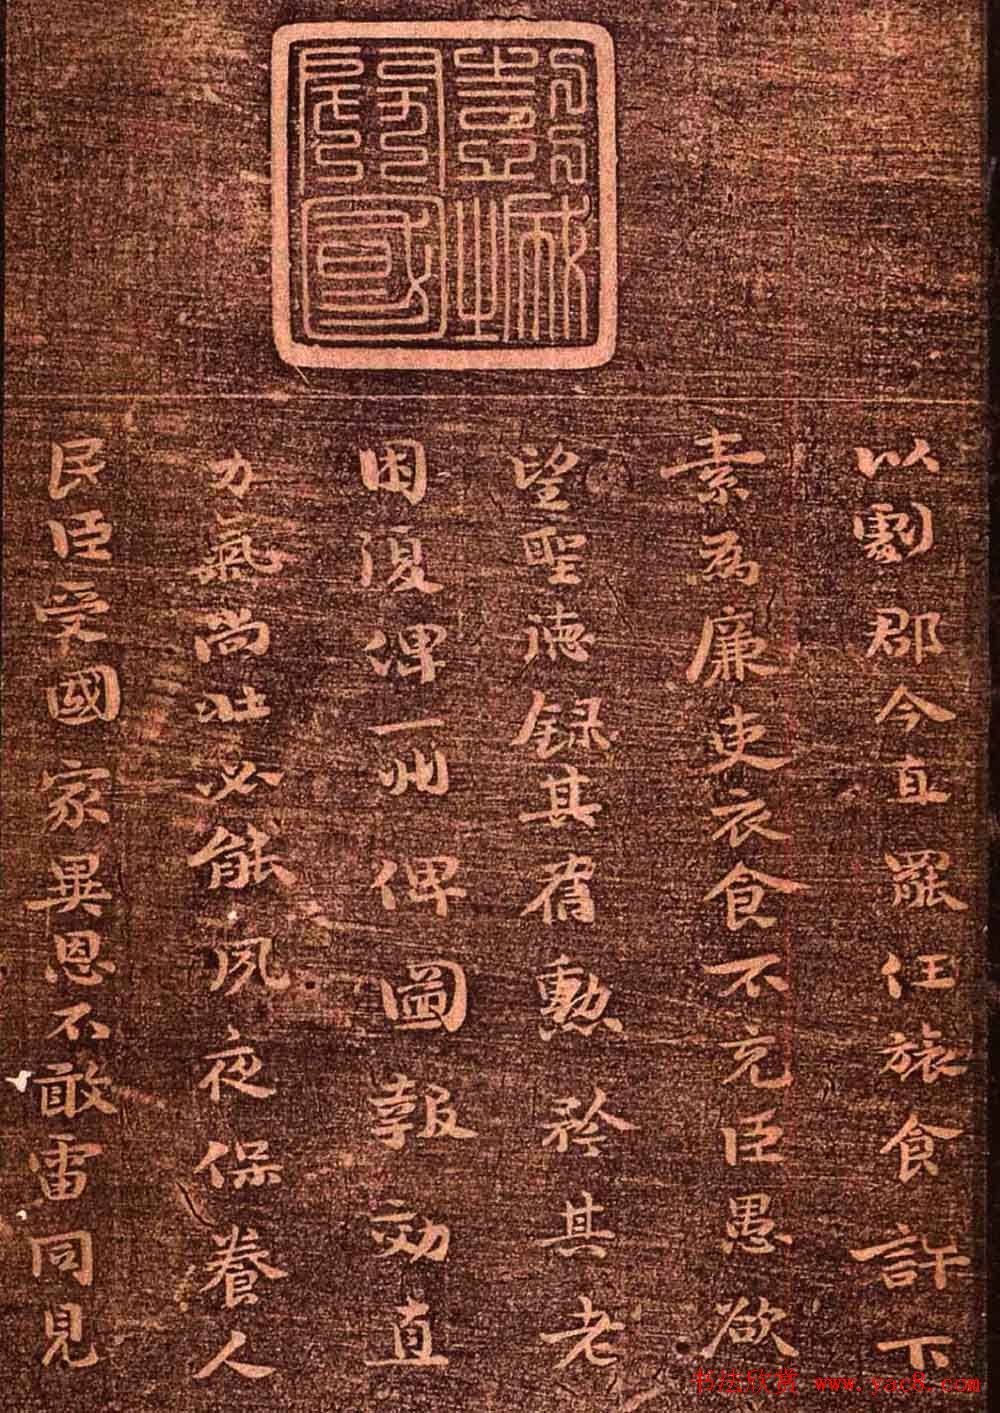 彭城開國
以劇郡今直罷任旅食許下
素為廉吏衣食不充臣愚欲
望聖德錄其舊勳矜其老
困復俾一州俾圖報効直
力氣尚壯必能夙夜保養人
民臣受國家異恩不敢雷同見
书法欣赏 www.yac8.com